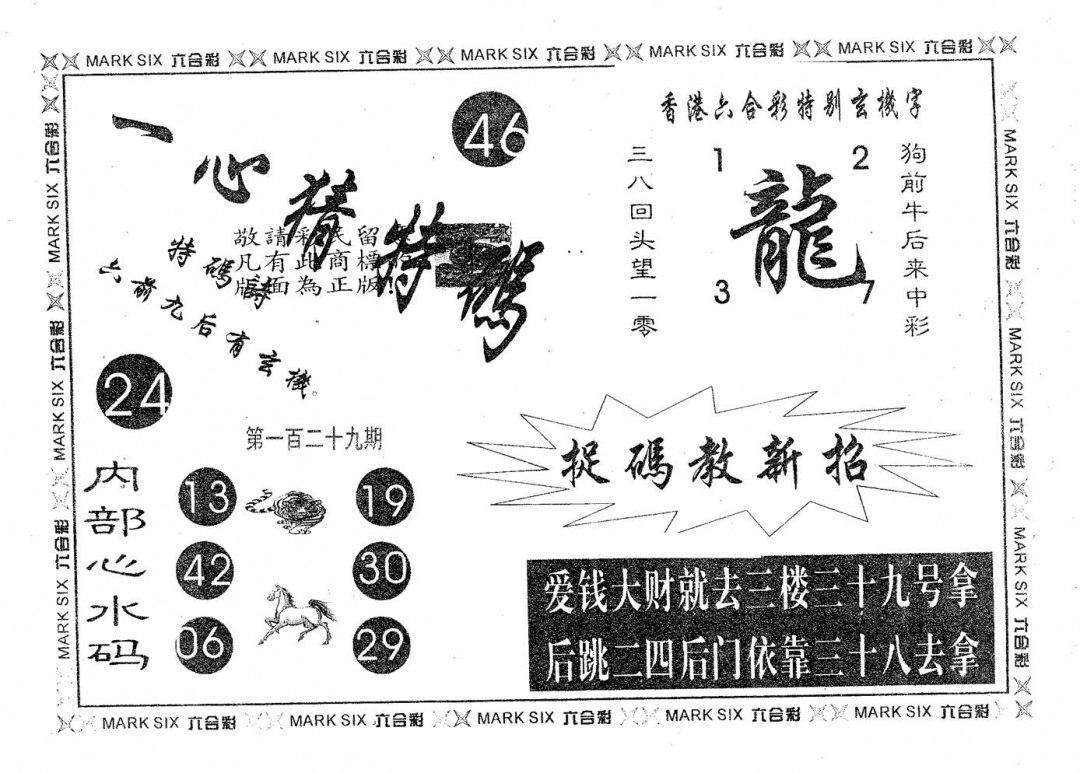 MARK SIX 六合彩 MARK SIX 六合彩 MARK SIX 六合彩 MARK SIX 六合彩 MARK SIX 六合彩
MARK SIX 六合彩 MARK SIX 六合彩 MARK SIX 六合彩
一心猜特碼
46
敬請彩民留
凡有此商標
版面為正版!
特碼詩
六前九后有玄機。
24
第一百二十九期
内部心水码
13
19
42
30
06
29
香港六合彩特别玄機字
三八回头望一零
1
2
龍
3
7
狗前牛后来中彩
捉碼教新招
爱钱大财就去三楼三十九号拿
后跳二四后门依靠三十八去拿
MARK SIX 六合彩 MARK SIX 六合彩 MARK SIX 六合彩
MARK SIX 六合彩 MARK SIX 六合彩 MARK SIX 六合彩 MARK SIX 六合彩 MARK SIX 六合彩